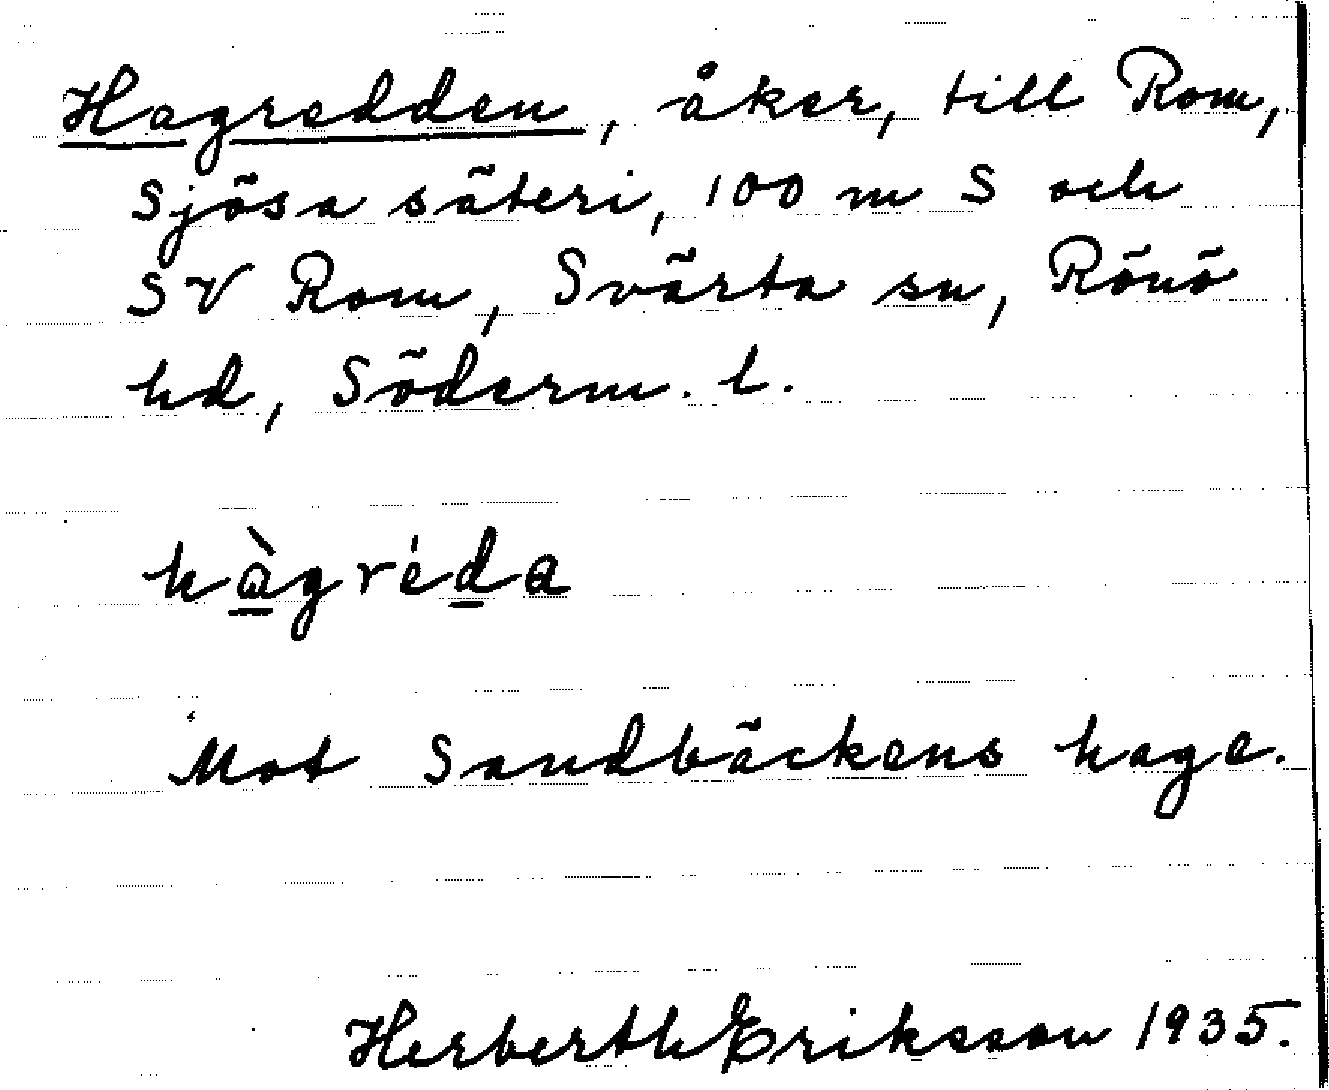 Hagredden, åker, till Rom,
Sjösa säteri, 100 m S och
SV Rom, Svärta sn, Rönö
hd, Söderm. l.
hàgréda
Mot Sandbäckens hage.
Herberth Eriksson 1935.